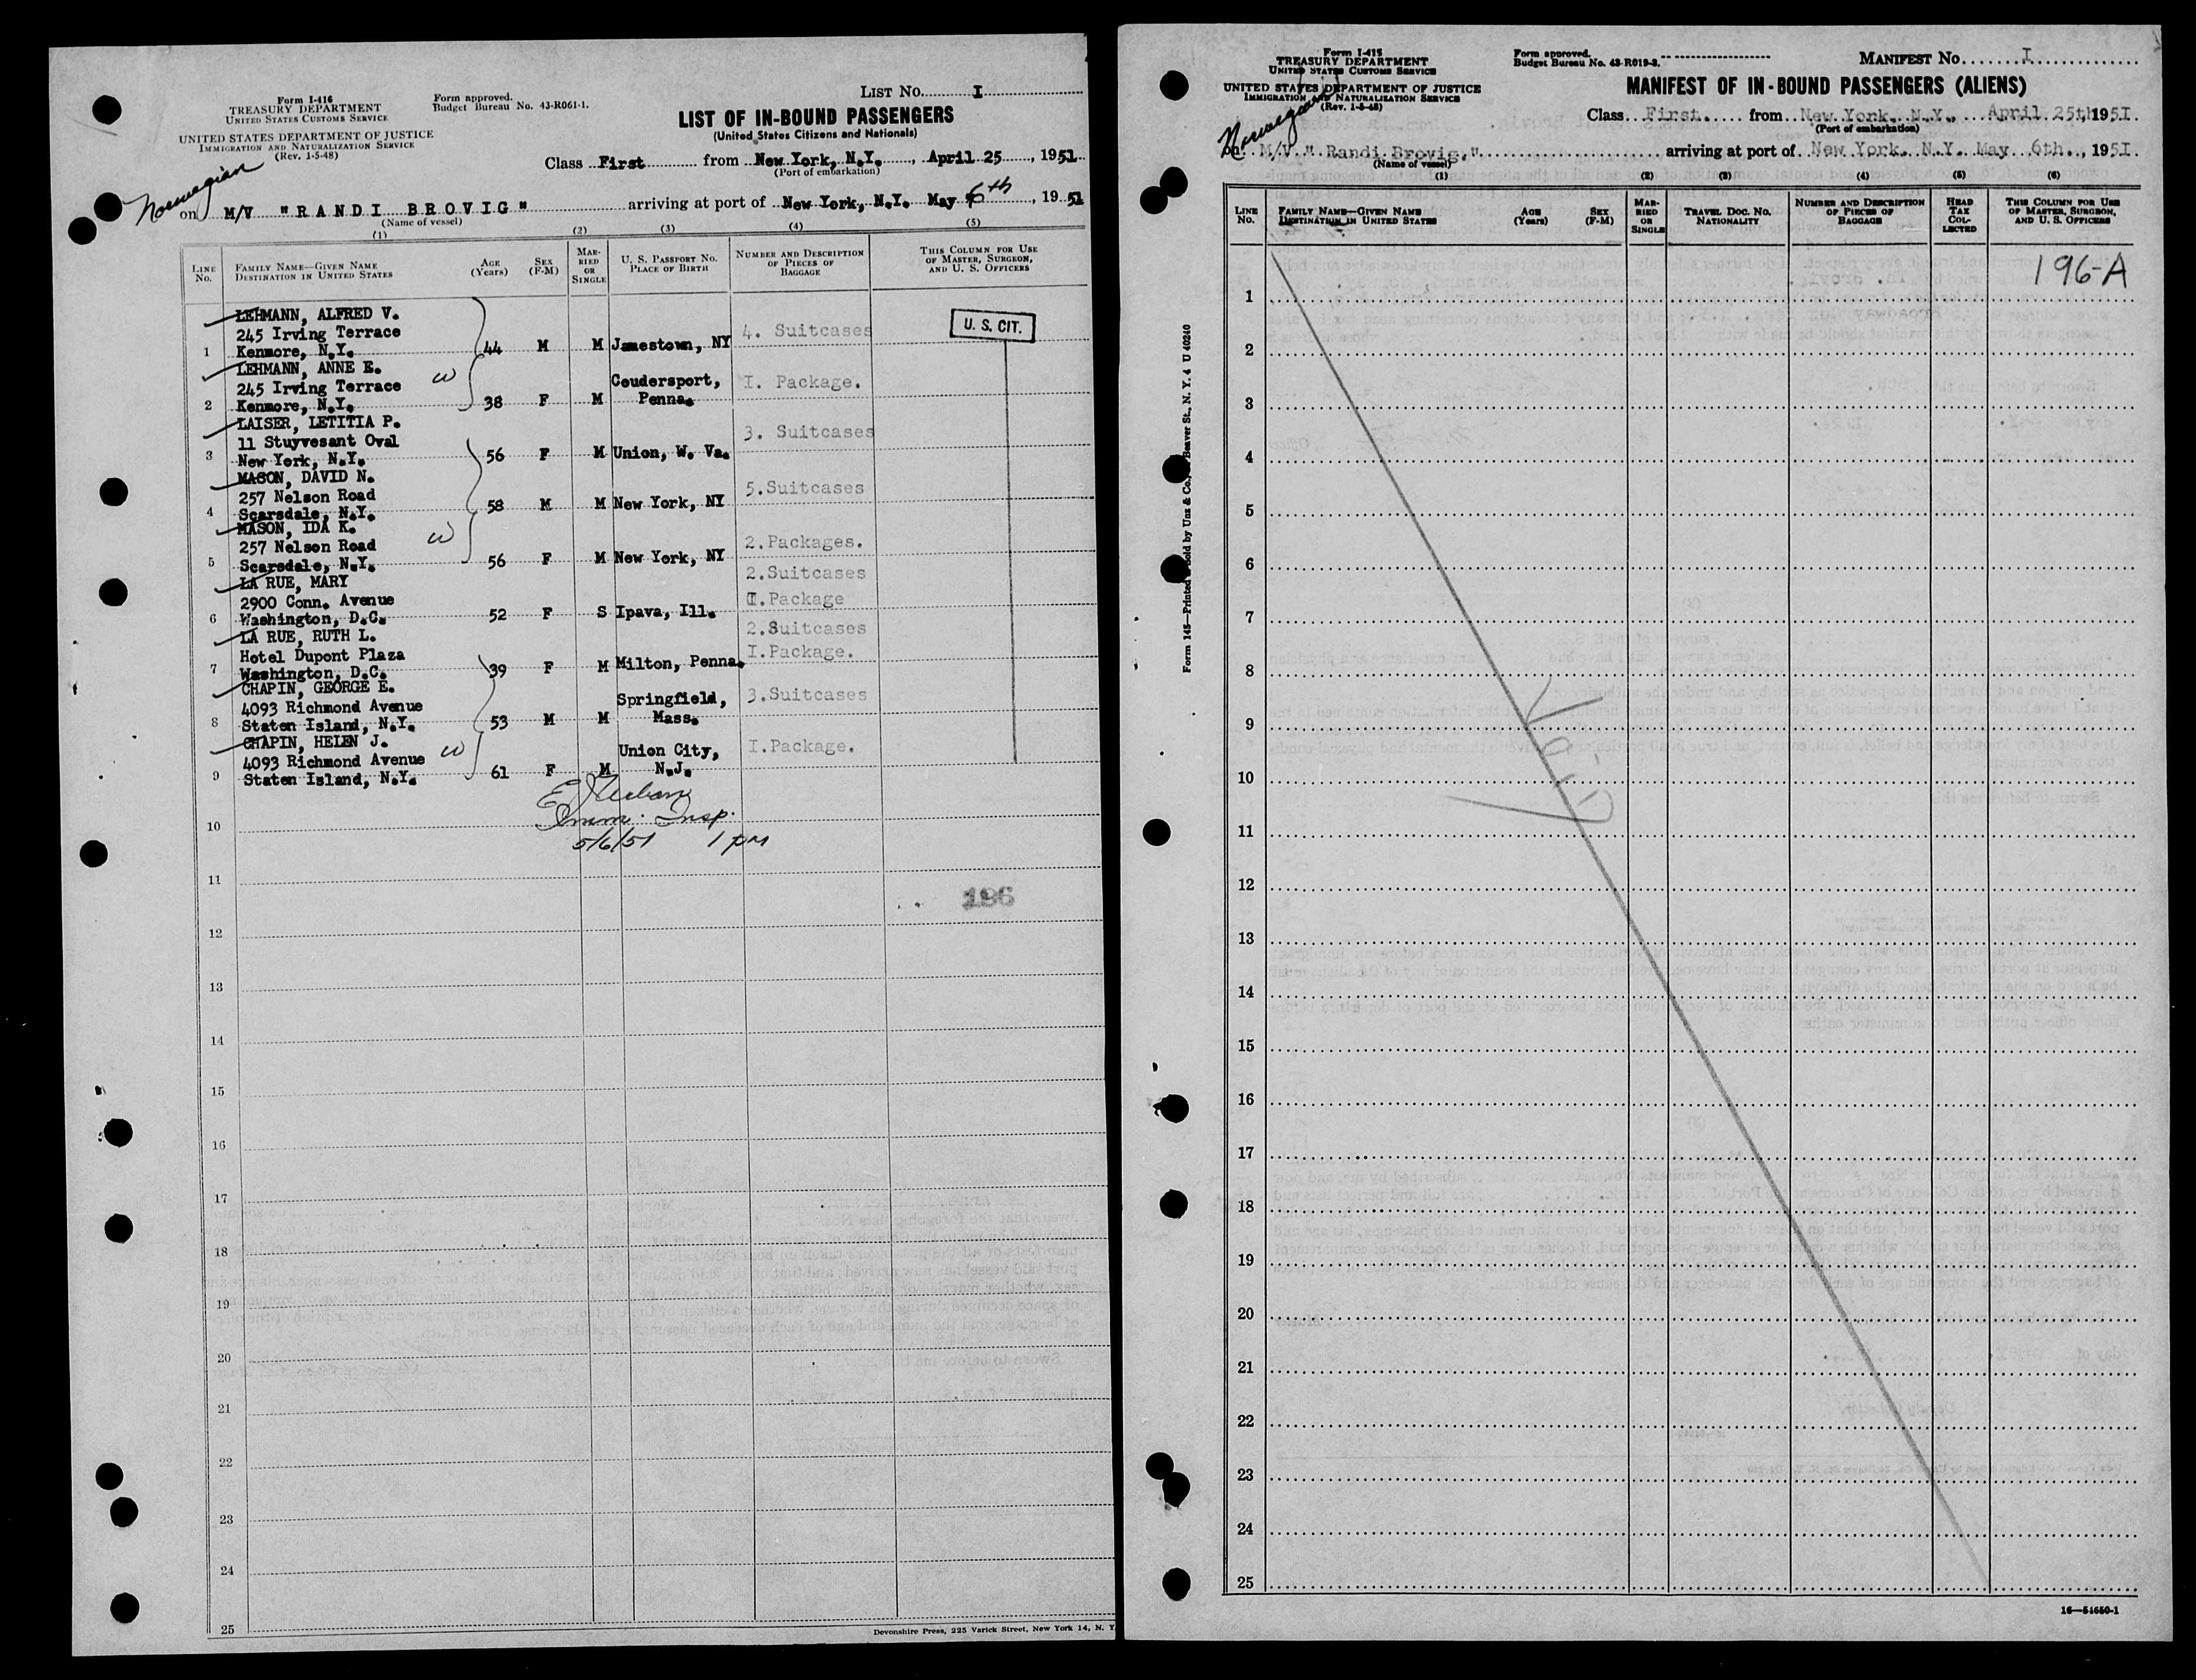 Form I-416
TREASURY DEPARTMENT
UNITED STATES CUSTOMS SERVICE
UNITED STATES DEPARTMENT OF JUSTICE
IMMIGRATION AND NATURALIZATION SERVICE
(Rev. 1-5-48)
Form approved.
Budget Bureau No. 43-R061-1.
LIST No. I
LIST OF IN-BOUND PASSENGERS
(United States Citizens and Nationals)
Class First from New York, N.Y., April 25, 1951
(Port of embarkation)
Norwegian
on M/V "RANDI BROVIG" arriving at port of New York, N.Y. May 6th, 1951
(Name of vessel)
(1) (2) (3) (4) (5)
LINE No. FAMILY NAME—GIVEN NAME DESTINATION IN UNITED STATES AGE (Years) SEX (F-M) MARRIED OR SINGLE U. S. PASSPORT No. PLACE OF BIRTH NUMBER AND DESCRIPTION OF PIECES OF BAGGAGE THIS COLUMN FOR USE OF MASTER, SURGEON, AND U. S. OFFICERS
LEHMANN, ALFRED V.
245 Irving Terrace 4. Suitcases U. S. CIT.
1 Kenmore, N.Y. 44 M M Jamestown, NY
LEHMANN, ANNE E. w
245 Irving Terrace Coudersport, I. Package.
2 Kenmore, N.Y. 38 F M Penna.
LAISER, LETITIA P.
11 Stuyvesant Oval 3. Suitcases
3 New York, N.Y. 56 F M Union, W. Va.
MASON, DAVID N.
257 Nelson Road 5.Suitcases
4 Scarsdale, N.Y. 58 M M New York, NY
MASON, IDA K. w
257 Nelson Road 2.Packages.
5 Scarsdale, N.Y. 56 F M New York, NY
LA RUE, MARY 2.Suitcases
2900 Conn. Avenue I.Package
6 Washington, D.C. 52 F S Ipava, Ill.
LA RUE, RUTH L. 2.Suitcases
Hotel Dupont Plaza I.Package.
7 Washington, D.C. 39 F M Milton, Penna.
CHAPIN, GEORGE E.
4093 Richmond Avenue Springfield, 3.Suitcases
8 Staten Island, N.Y. 53 M M Mass.
CHAPIN, HELEN J. w
4093 Richmond Avenue Union City, I.Package.
9 Staten Island, N.Y. 61 F M N.J.
Imm. Insp.
10
5/6/51 1 pm
11
196
12
13
14
15
16
17
18
19
20
21
22
23
24
25
Devonshire Press, 225 Varick Street, New York 14, N. Y.
Form I-415
TREASURY DEPARTMENT
UNITED STATES CUSTOMS SERVICE
UNITED STATES DEPARTMENT OF JUSTICE
IMMIGRATION AND NATURALIZATION SERVICE
(Rev. 1-5-48)
Form approved.
Budget Bureau No. 43-R019-3.
MANIFEST No. I
MANIFEST OF IN-BOUND PASSENGERS (ALIENS)
Class First. from New York, N.Y., April 25th, 1951.
(Port of embarkation)
Norwegian
on M/V " Randi Brovig," arriving at port of New York. N.Y. May 6th., 1951.
(Name of vessel)
(1) (2) (3) (4) (5) (6)
LINE No. FAMILY NAME—GIVEN NAME DESTINATION IN UNITED STATES AGE (Years) SEX (F-M) MARRIED OR SINGLE TRAVEL DOC. No. NATIONALITY NUMBER AND DESCRIPTION OF PIECES OF BAGGAGE HEAD TAX COLLECTED THIS COLUMN FOR USE OF MASTER, SURGEON, AND U. S. OFFICERS
196-A
1
2
3
4
5
6
7
8
9
10
11
12
13
14
15
16
17
18
19
20
21
22
23
24
25
16—54650-1